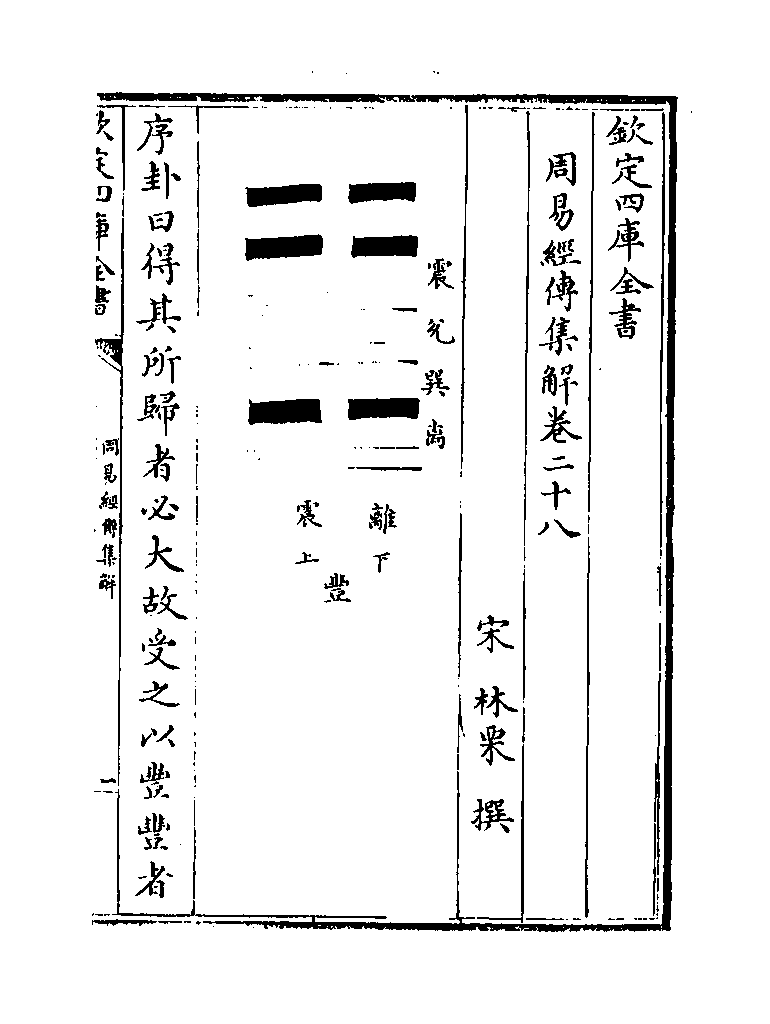 欽定四庫全書
周易經傳集解卷二十八
宋 林栗 撰
震兌巽离
離下
震上
豐
序卦曰得其所歸者必大故受之以豐豐者
欽定四庫全書
周易經傳集解
一